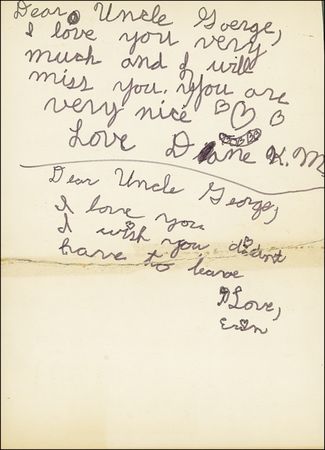 Dear Uncle Goerge,
I love you very
much and I will
miss you. You are
very nice
Love Diane K. M
Dear Uncle George,
I love you.
I wish you didint
have to leave
Love,
Erin